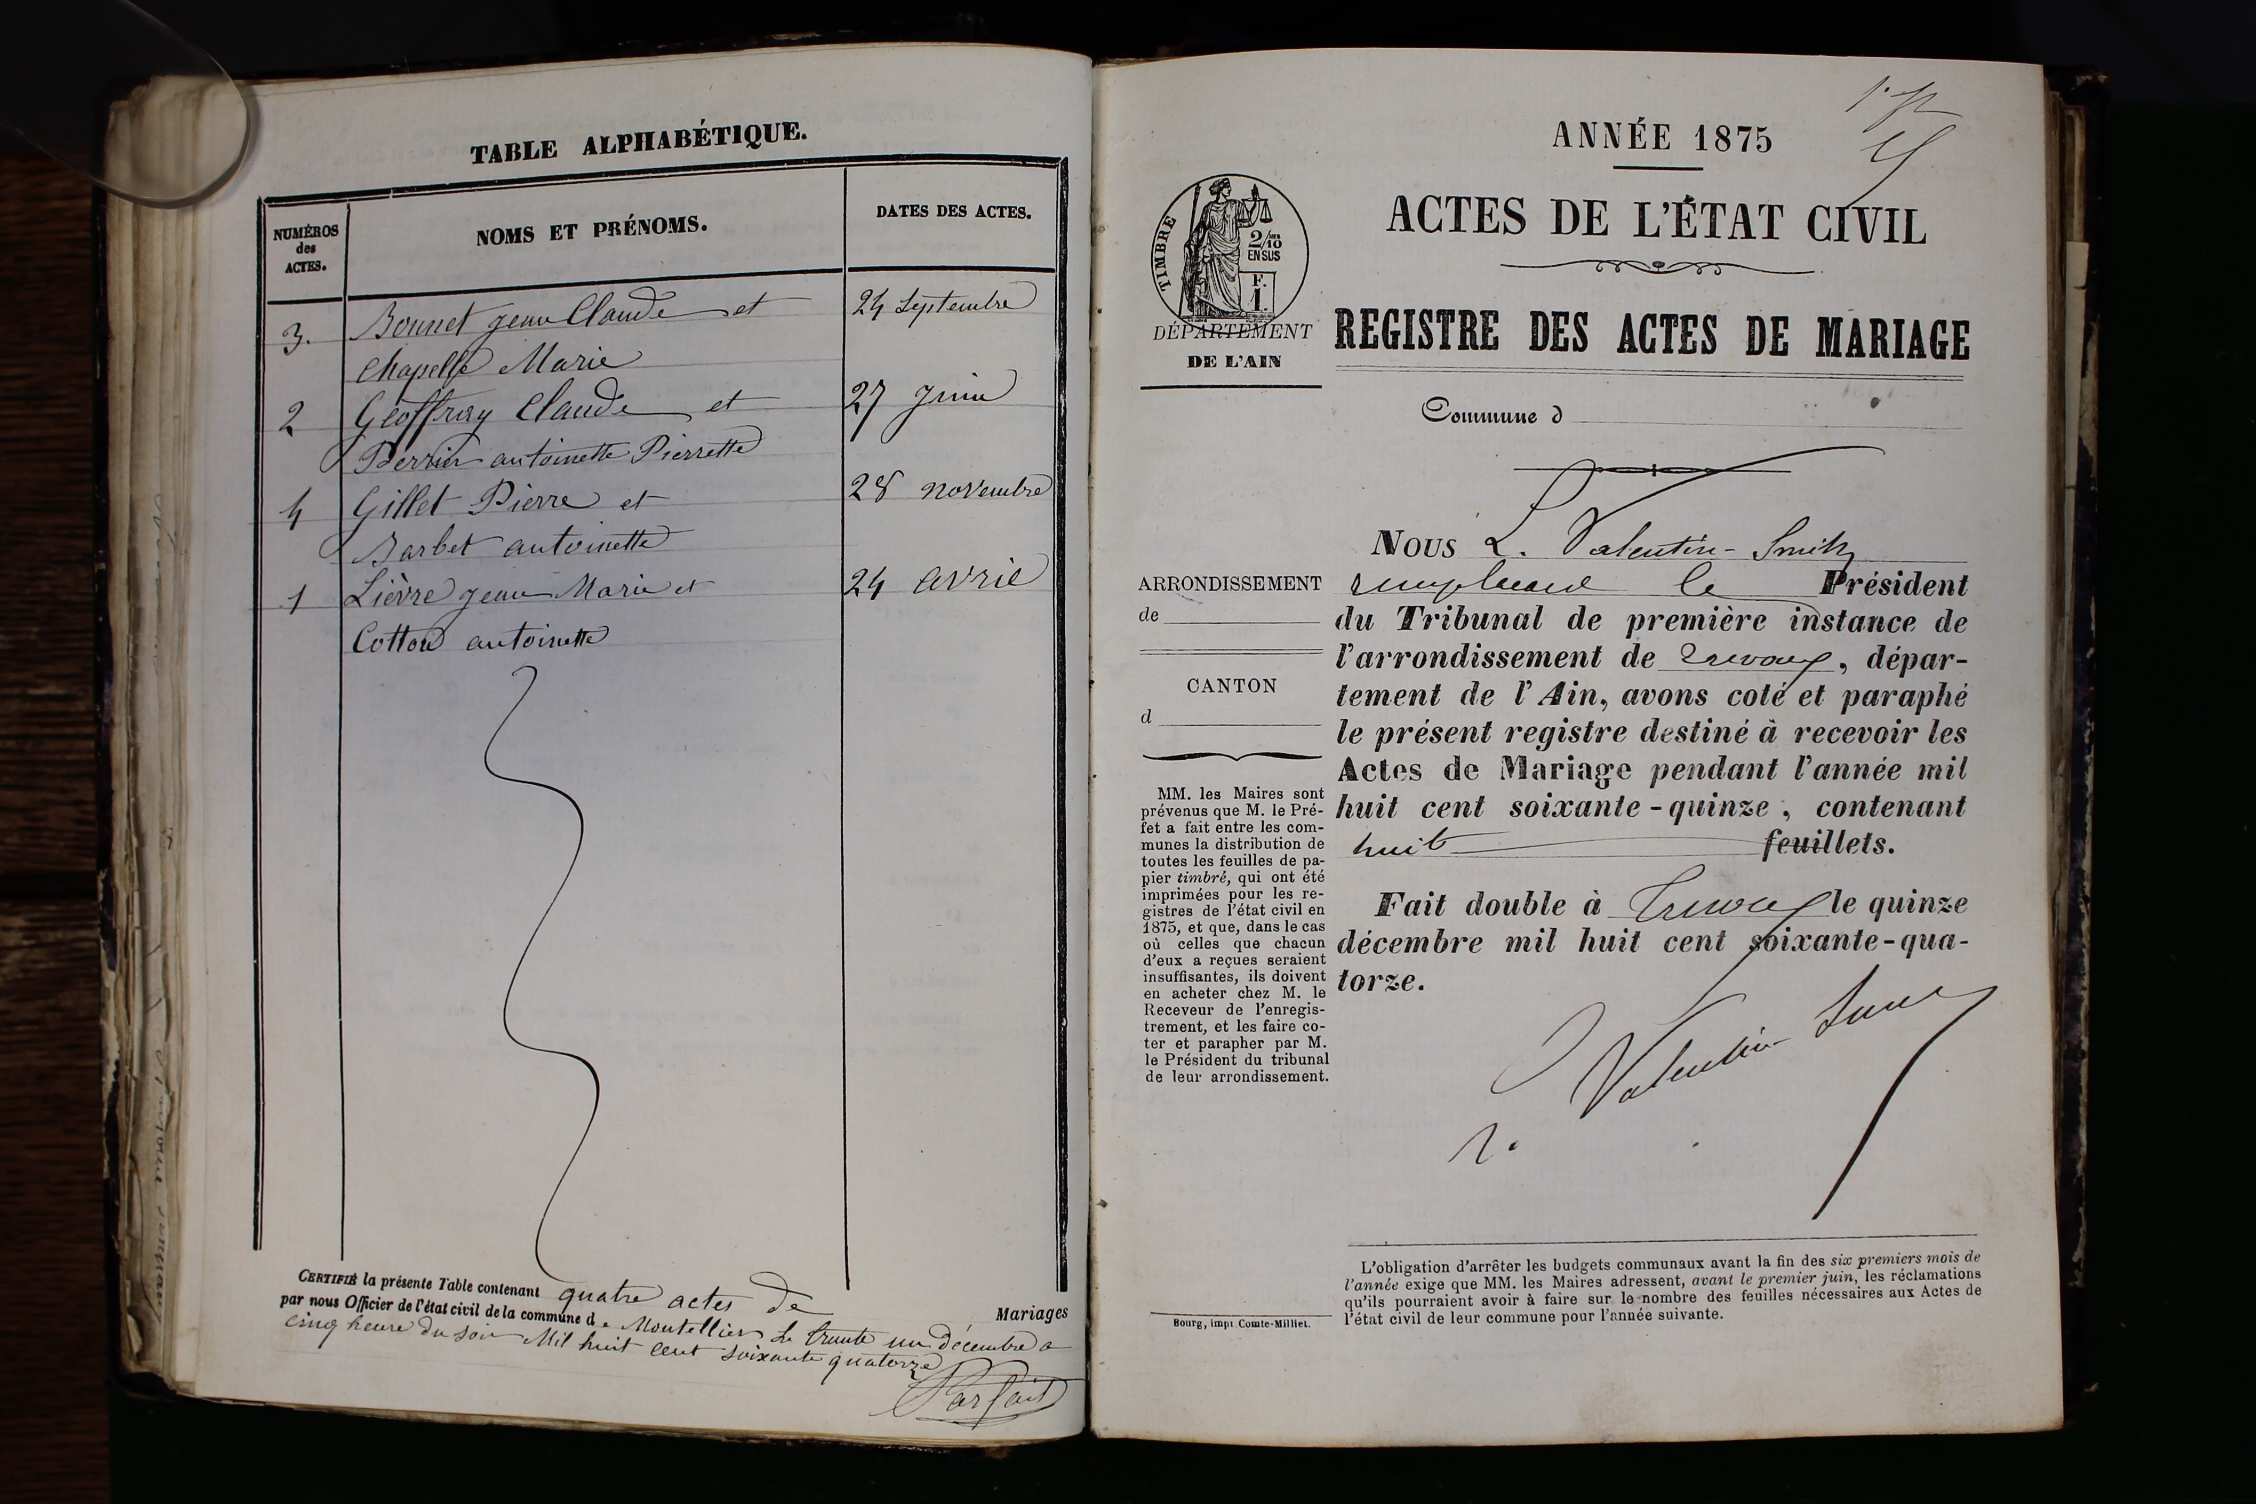 TABLE ALPHABÉTIQUE.
NUMÉROS
des
ACTES.
NOMS ET PRÉNOMS.
DATES DES ACTES.
3. Bonnet jean Claude et 24 Septembre
Chapelle Marie
2 Geoffray Claude et 27 Juin
Perrin antoinette Pierrette
4 Gillet Pierre et 28 novembre
Barbet antoinette
1 Lièvre jean Marie et 24 avril
Cotton antoinette
CERTIFIÉ la présente Table contenant quatre actes de Mariages
par nous Officier de l'état civil de la commune d e Montellier Le trente un décembre a
cinq heure du soir Mil huit cent soixante quatorze
Parfait
ANNÉE 1875
ACTES DE L'ÉTAT CIVIL
TIMBRE
2/10
EN SUS
F.
1.
DÉPARTEMENT
DE L'AIN
REGISTRE DES ACTES DE MARIAGE
Commune d
ARRONDISSEMENT
de
CANTON
d
MM. les Maires sont
prévenus que M. le Pré-
fet a fait entre les com-
munes la distribution de
toutes les feuilles de pa-
pier timbré, qui ont été
imprimées pour les re-
gistres de l'état civil en
1875, et que, dans le cas
où celles que chacun
d'eux a reçues seraient
insuffisantes, ils doivent
en acheter chez M. le
Receveur de l'enregis-
trement, et les faire co-
ter et parapher par M.
le Président du tribunal
de leur arrondissement.
Bourg, impr. Comte-Milliet.
NOUS L. Valentin-Smith
remplaçant le Président
du Tribunal de première instance de
l'arrondissement de Trévoux, dépar-
tement de l'Ain, avons coté et paraphé
le présent registre destiné à recevoir les
Actes de Mariage pendant l'année mil
huit cent soixante-quinze, contenant
huit feuillets.
Fait double à Trévoux le quinze
décembre mil huit cent soixante-qua-
torze.
Valentin Smith
L'obligation d'arrêter les budgets communaux avant la fin des six premiers mois de
l'année exige que MM. les Maires adressent, avant le premier juin, les réclamations
qu'ils pourraient avoir à faire sur le nombre des feuilles nécessaires aux Actes de
l'état civil de leur commune pour l'année suivante.